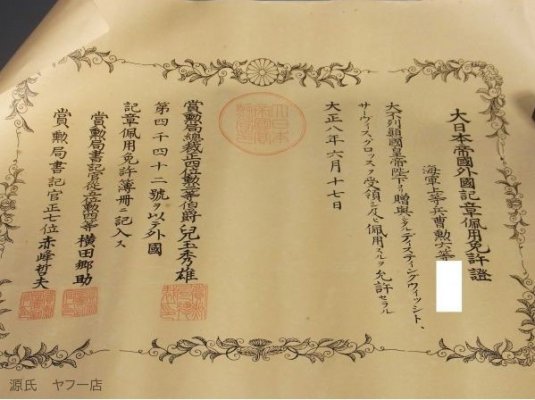 大日本帝國外國記章佩用免許證
海軍上等兵曹勲六等
大不列顛國皇帝陛下ヨリ贈與シタルディスティングウィッシト、
サーヴィスクロッスヲ受領シ及ヒ佩用スルヲ允許セラル
大正八年六月十七日
賞勲局總裁正四位勲二等伯爵兒玉秀雄
第四千四十二號ヲ以テ外國
記章佩用免許簿冊ニ記入ス
賞勲局書記官從五位勲四等 横田郷助
賞勲局書記官正七位 赤峰哲夫
源氏 ヤフー店